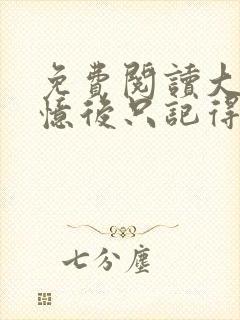 免費閱讀大
憶後只記得
七分塵